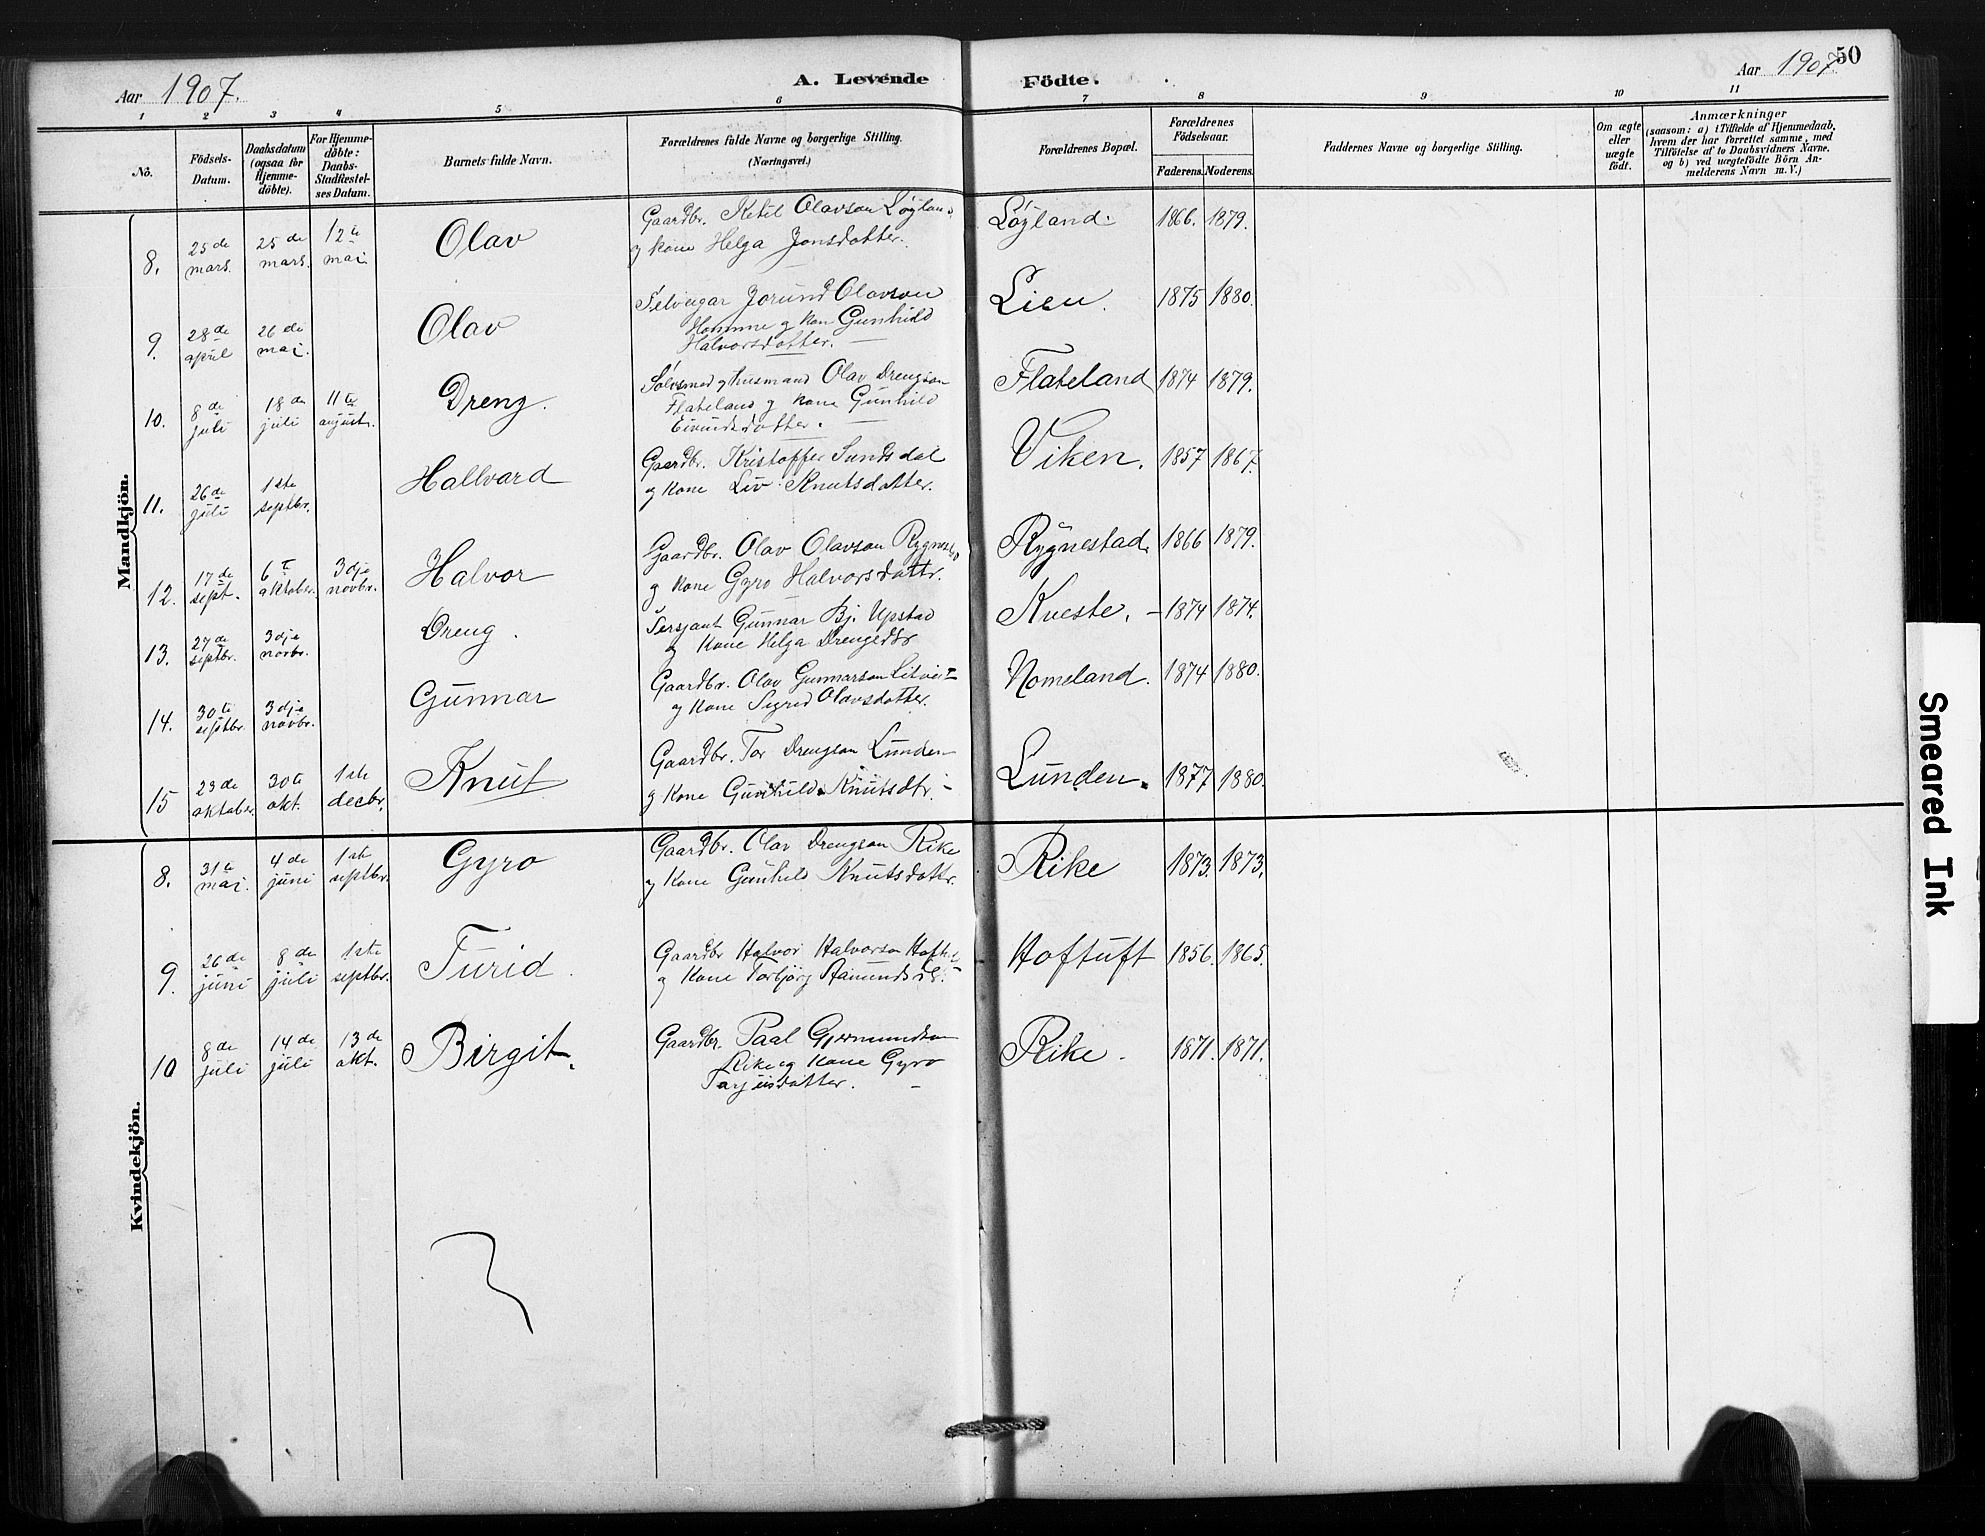 50
Aar 1907.
A. Levende Födte.
Aar 1907
1 2 3 4 5 6 7 8 9 10 11
No.
Födsels-Datum.
Daabsdatum (ogsaa for Hjemme-döbte).
For Hjemme-döbte: Daabs-Stadfæstel-ses Datum.
Barnets fulde Navn.
Forældrenes fulde Navne og borgerlige Stilling. (Næringsvei.)
Forældrenes Bopæl.
Forældrenes Födselsaar.
Faderens. Moderens.
Faddernes Navne og borgerlige Stilling.
Om ægte eller uægte födt.
Anmærkninger
(saasom: a) i Tilfælde af Hjemmedaab, hvem der har forrettet samme, med Tilföielse af to Daabsvidners Navne, og b) ved uægtefödte Börn An-melderens Navn m. V.)
Mandkjön.
8. 25de mars. 25de mars. 12te mai Olav Gaardbr. Ketil Olavson Løyland og kone Helga Jonsdotter. Løyland. 1866. 1879.
9. 28de april 26de mai. Olav Selveigar Jorund Olavson Homme og kone Gunhild Halvorsdotter. Lien. 1875 1880.
10. 8de juli 18de juli 11te august. Dreng. Sølvsmed og husmand Olav Drengson Flateland og kone Gunhild Eivindsdotter. Flateland 1874 1879.
11. 26de juli 1ste septbr. Hallvard Gaardbr. Kristoffer Sundsdal og kone Liv Knutsdotter. Viken. 1857 1867.
12. 17de sept. 6te oktober. 3dje novbr. Halvor Gaardbr. Olav Olavson Rygnestad og kone Gyro Halvorsdottr. Rygnestad. 1866 1879.
13. 27de septbr. 3dje novbr. Dreng. Sersjant Gunnar Bj. Upstad og kone Helga Drengsdtr Kveste. 1874 1874.
14. 30te septbr. 3dje novbr. Gunnar Gaardbr. Olav Gunnarson og kone Sigrid Olavsdotter. Nomeland. 1874 1880.
15 23de oktober 30te okt. 1ste decbr. Knut Gaardbr. Tor Drengson Lunden og kone Gunhild Knutsdtr. Lunden. 1877 1880.
Kvindekjön.
8. 31te mai. 4de juni 1ste septbr. Gyro Gaardbr. Olav Drengson Rike og kone Gunhild Knutsdottr. Rike 1873. 1873.
9. 26de juni 8de juli 1ste septbr. Turid Gaardbr Halvor Halvorson og kone Torbjørg Aamundsdtr. Hoftuft 1856. 1865.
10 8de juli 14de juli 13de okt. Birgit. Gaardbr. Paal Gjermundson Rike og kone Gyro Tarjeisdotter. Rike. 1871. 1871.
Smeared Ink